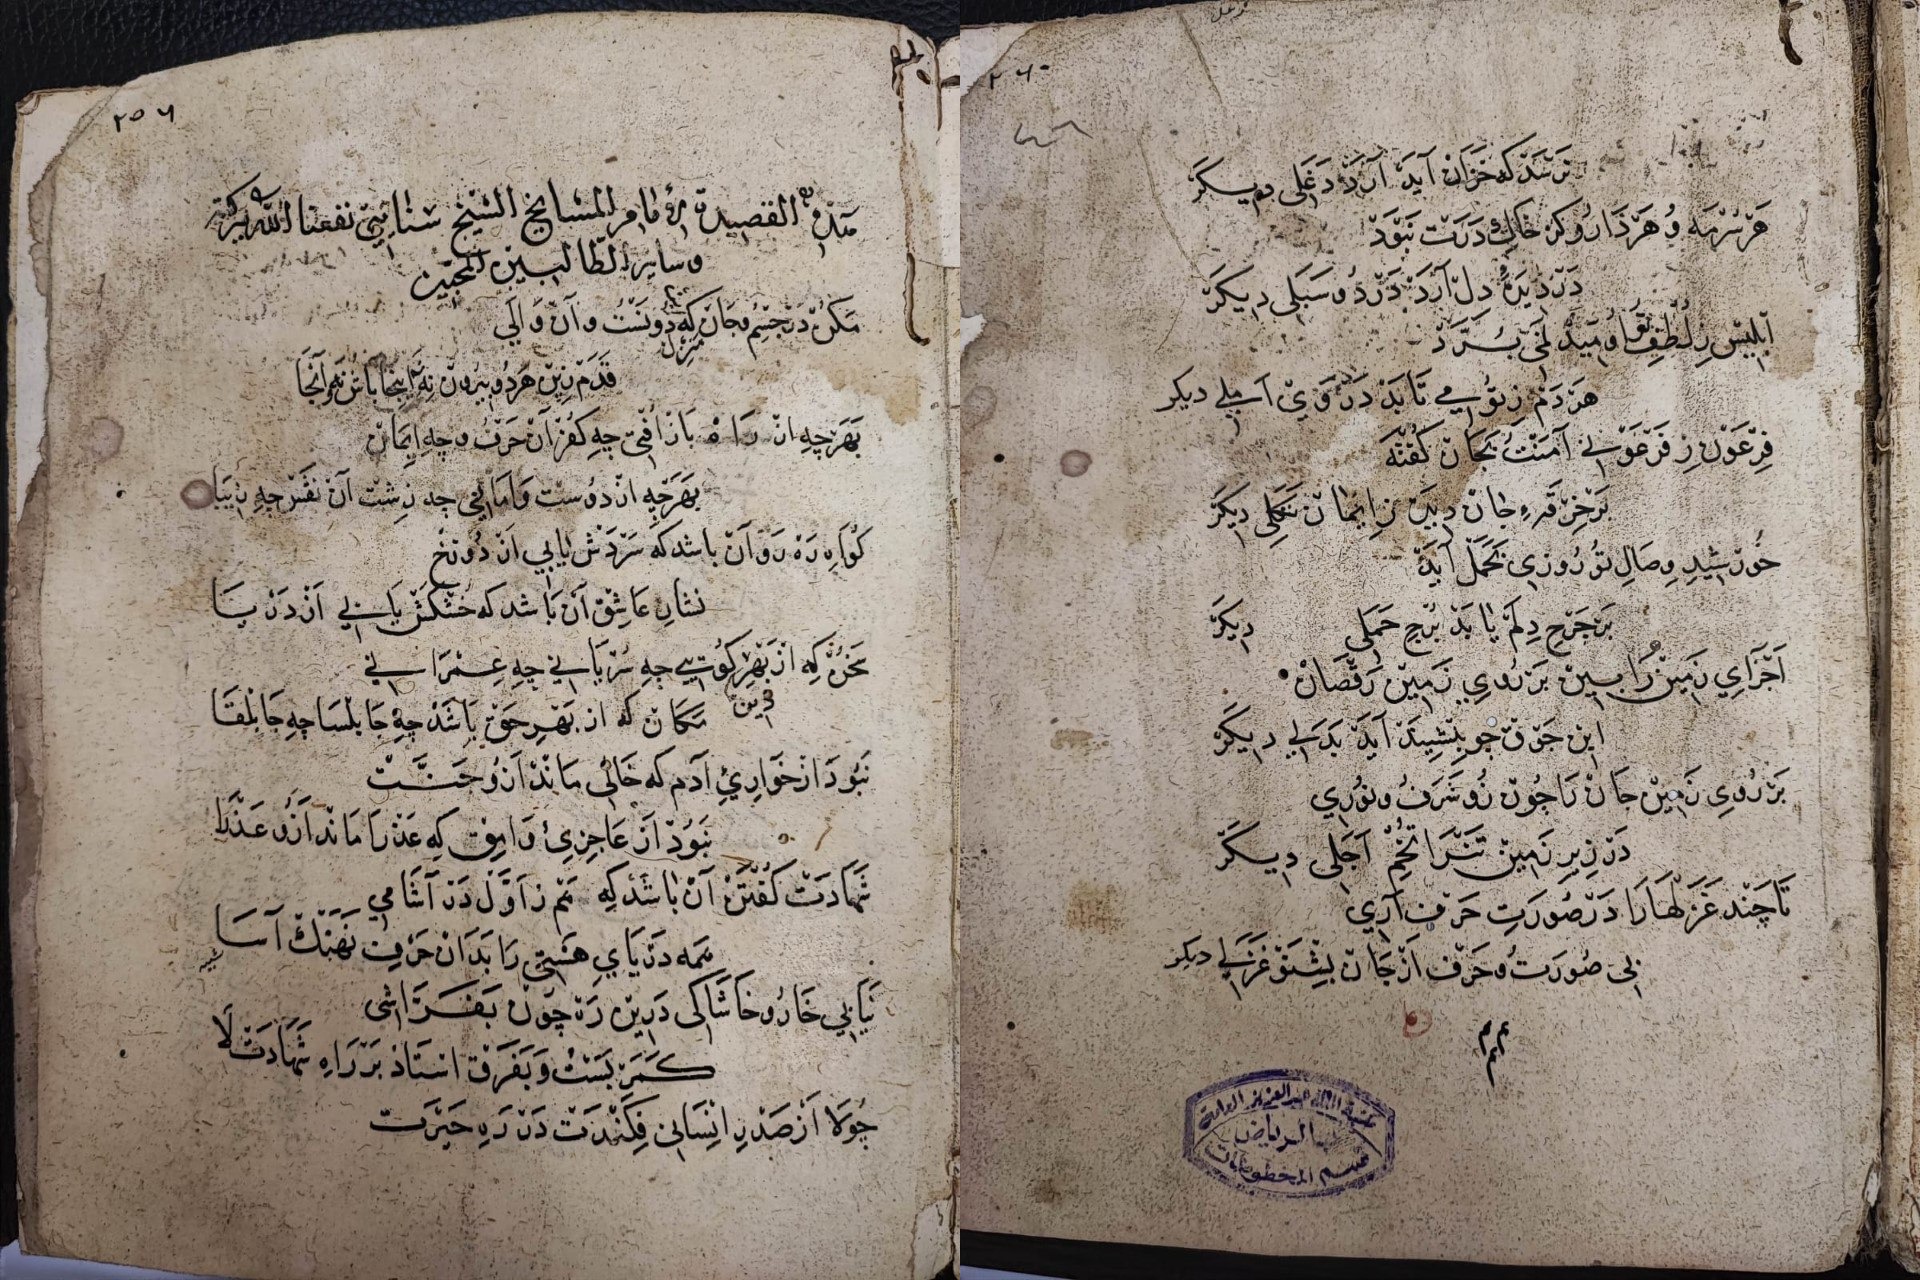 ٢٥٦
هذه القصيدة لإمام المشايخ الشيخ سنائي نفعنا الله ببركته
وسائر الطالبين المحبين
مكن در جسم و جان منزل که دونست و آن والی
قدم زین هر دو بیرون نه نه اینجا باش نه آنجا
بهرچه از راه باز افتی چه کفر آن حرف و چه ایمان
بهرچه از دوست وامانی چه زشت آن نقش چه زیبا
گواه ره رو آن باشد که سردش یابی از دوزخ
نشان عاشق آن باشد که خشکش یابی از دریا
سخن که از بهر دین گویی چه سریانی چه عبرانی
مکان که از بهر حق باشد چه جابلسا چه جابلقا
نبود از خواری آدم که خالی ماند ازو جنت
نبود از عاجزی وامق که عذرا ماند ازو عذرا
شهادت گفتن آن باشد که هم ز اول در آشامی
همه دریای هستی را بدان حرف نهنگ آسا
نیابی خار و خاشاکی درین ره چون بفراشی
کمر بست و بفرق استاد بر راه شهادت لا
چو لا از صدر انسانی فکندت در ره حیرت
٢٦٠
ترسد که خزان آید آرد دغلی دیگر
هر سرمه و هر دارو کز خاک درت نبود
در دیده دل آرد درد و سبلی دیگر
ابلیس ز لطف تو اومید نمی برد
هر دم ز تو می تابد در وی املی دیگر
فرعون ز فرعونی آمنت بجان گفته
برخرقه جان دیده ز ایمان تکلی دیگر
خورشید وصال تو روزی بحمل آید
بر چرخ دلم یابد برج حملی دیگر
اجزای زمین را بین بر روی زمین رقصان
این جوق چو بنشیند آید بدلی دیگر
بر روی زمین جان را چون رو شرف و نوری
در زیر زمین تن را تخم اجلی دیگر
تا چند غزلها را در صورت حرف آری
بی صورت و حرف از جان بشنو غزلی دیگر
مكتبة الملك عبدالعزيز العامة
بالرياض
قسم المخطوطات